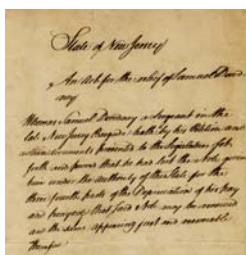 State of New Jersey
An Act for the relief of Samuel Dond
any
Whereas Samuel Dondany a Sergeant in the
late New Jersey Brigade, hath by his Petition and
other documents presented to the Legislature Set
forth and proved that he had lost the Note given
him under the authority of this State for the
three fourth parts of the Depreciation of his pay
and prayed that said Note may be renewed
and the same appearing just and reasonable
therefore